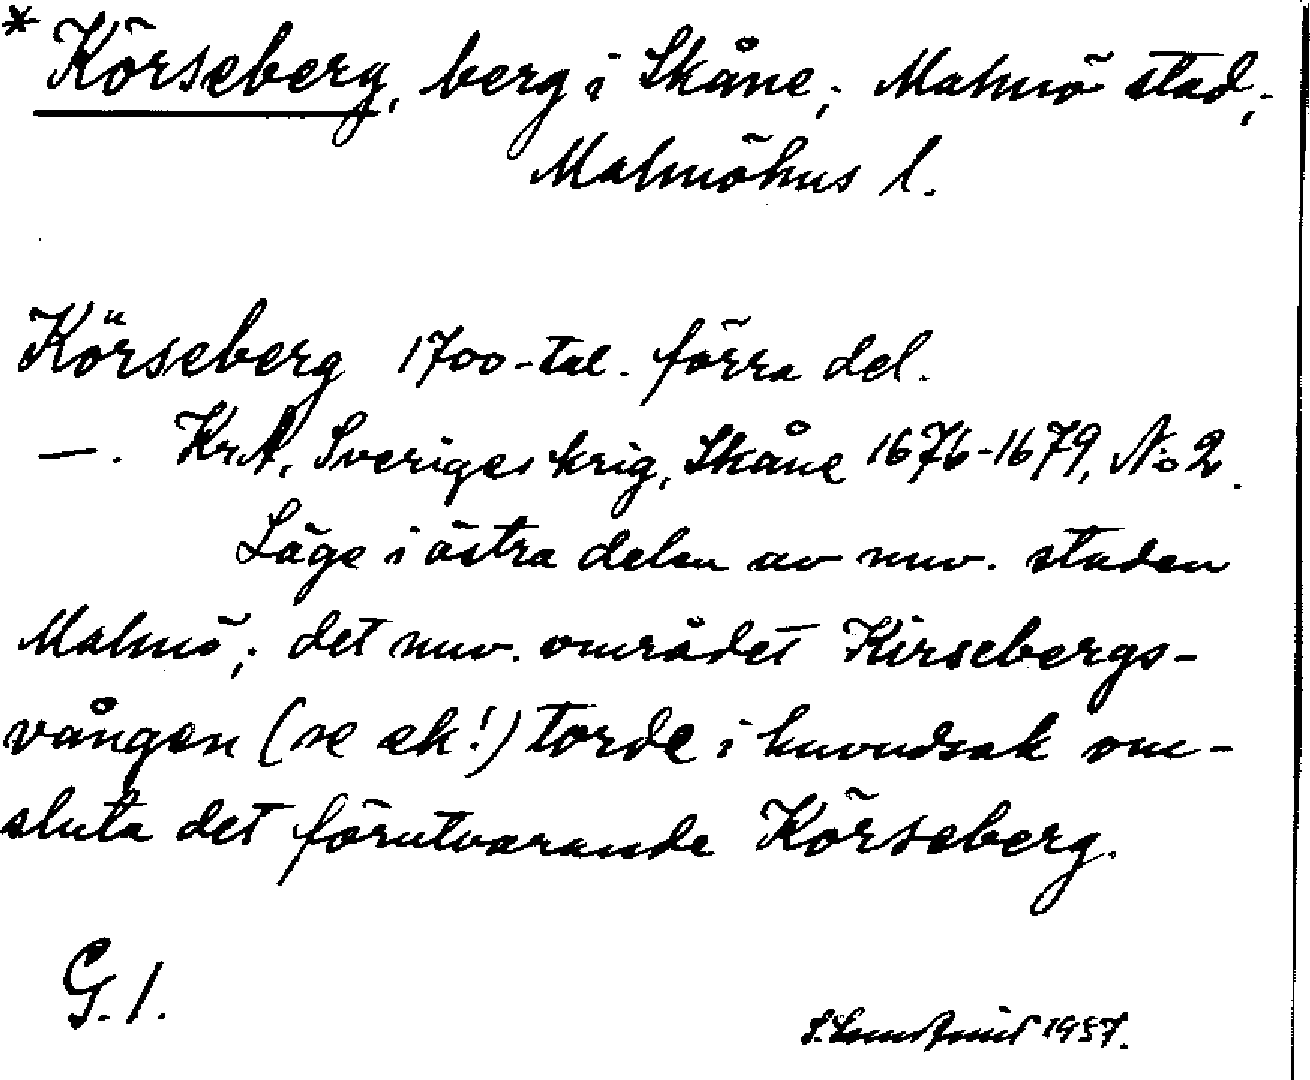 * Körseberg, berg i Skåne; Malmö stad;
Malmöhus l.
Körseberg 1700-tal. förra del.
—. KrA, Sveriges krig, Skåne 1676-1679, No 2.
Läge i östra delen av nuv. staden
Malmö; det nuv. området Kirsebergs-
vången (se ek!) torde i huvudsak om-
sluta det förutvarande Körseberg.
G. 1.
1957.